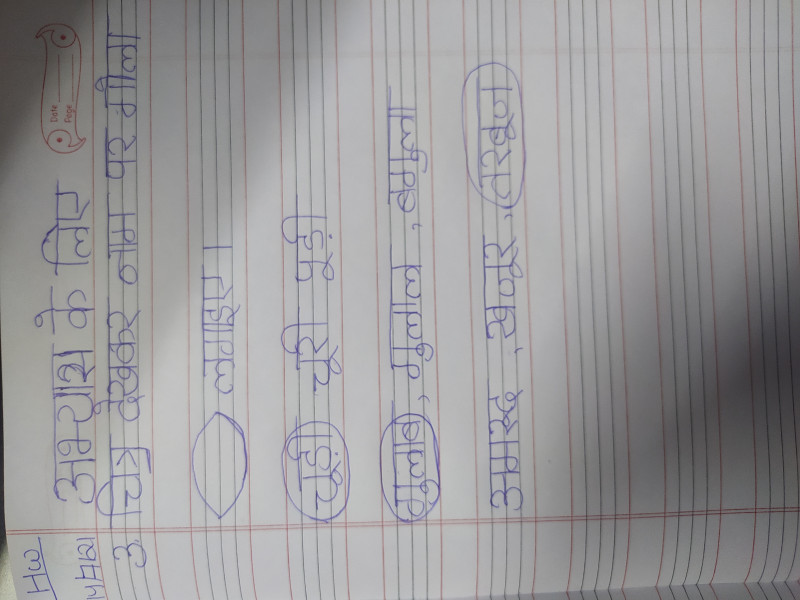 Date
Page
HW
अभ्याश के लिए
3. चित्र देखकर नाम पर गोला
लगाइए।
चूड़ी चूरी पूड़ी
गुलाब, गुलाल, बगुला
अमरुद, खजूर, तरबूज